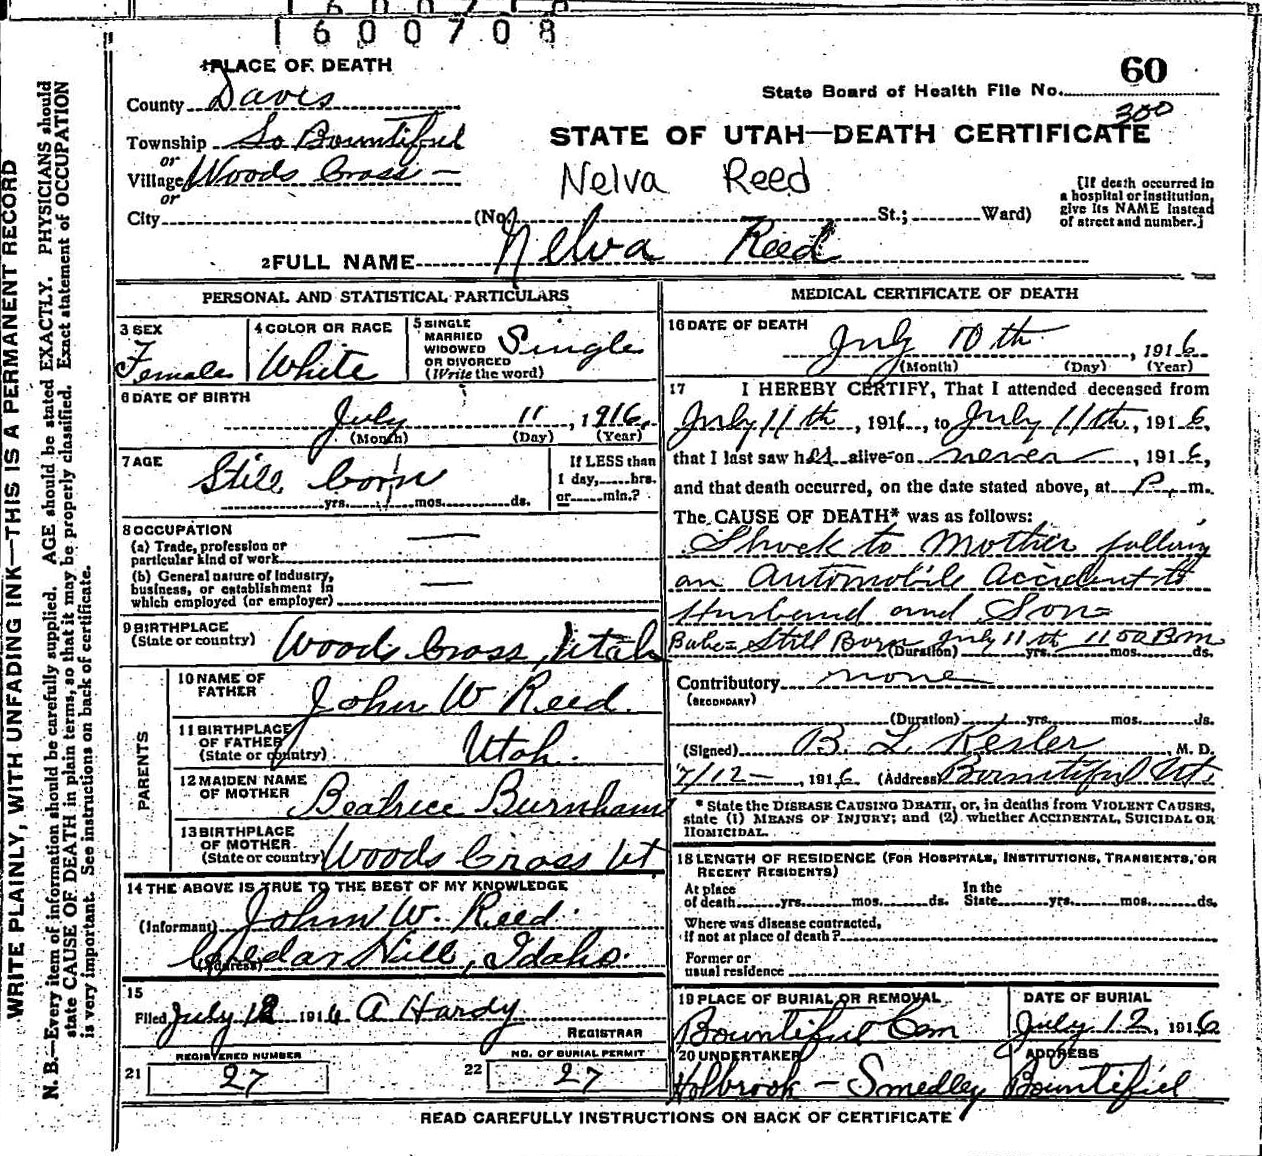 1600708
1 PLACE OF DEATH
County Davis
Township So Bountiful
or
Village Woods Cross —
or
City (No. St.; Ward)
State Board of Health File No. 60
300
STATE OF UTAH—DEATH CERTIFICATE
Nelva Reed
[If death occurred in
a hospital or institution,
give its NAME instead
of street and number.]
2 FULL NAME Nelva Reed
PERSONAL AND STATISTICAL PARTICULARS
3 SEX
Female
4 COLOR OR RACE
White
5 SINGLE
MARRIED
WIDOWED
OR DIVORCED
(Write the word)
Single
6 DATE OF BIRTH
July 11, 1916.
(Month) (Day) (Year)
7 AGE
Still born
yrs. mos. ds.
If LESS than
1 day, hrs.
or min.?
8 OCCUPATION
(a) Trade, profession or
particular kind of work —
(b) General nature of industry,
business, or establishment in
which employed (or employer) —
9 BIRTHPLACE
(State or country) Woods Cross, Utah
PARENTS
10 NAME OF
FATHER John W Reed.
11 BIRTHPLACE
OF FATHER
(State or country) Utah.
12 MAIDEN NAME
OF MOTHER Beatrice Burnham
13 BIRTHPLACE
OF MOTHER
(State or country) Woods Cross Ut
14 THE ABOVE IS TRUE TO THE BEST OF MY KNOWLEDGE
(Informant) John W. Reed.
(Address) Cedar Hill, Idaho.
15
Filed July 12 1916 A Hardy
REGISTRAR
21 REGISTERED NUMBER
27
22 NO. OF BURIAL PERMIT
27
MEDICAL CERTIFICATE OF DEATH
16 DATE OF DEATH
July 10th, 1916
(Month) (Day) (Year)
17 I HEREBY CERTIFY, That I attended deceased from
July 11th, 1916, to July 11th, 1916,
that I last saw her alive on never, 1916,
and that death occurred, on the date stated above, at P. m.
The CAUSE OF DEATH* was as follows:
Shock to Mother following
an Automobile Accident to
Husband and Son=
Babe= Still Born July 11th 1100
(Duration) yrs. mos. ds.
Contributory none
(SECONDARY)
(Duration) yrs. mos. ds.
(Signed) B. L Kesler, M. D.
7/12 —, 1916 (Address) Bountiful Ut.
* State the DISEASE CAUSING DEATH, or, in deaths from VIOLENT CAUSES,
state (1) MEANS OF INJURY; and (2) whether ACCIDENTAL, SUICIDAL OR
HOMICIDAL.
18 LENGTH OF RESIDENCE (FOR HOSPITALS, INSTITUTIONS, TRANSIENTS, OR
RECENT RESIDENTS)
At place
of death yrs. mos. ds.
In the
State yrs. mos. ds.
Where was disease contracted,
if not at place of death?
Former or
usual residence
19 PLACE OF BURIAL OR REMOVAL
Bountiful Cem
DATE OF BURIAL
July 12, 1916
20 UNDERTAKER
Holbrook — Smedley
ADDRESS
Bountiful
READ CAREFULLY INSTRUCTIONS ON BACK OF CERTIFICATE
WRITE PLAINLY, WITH UNFADING INK—THIS IS A PERMANENT RECORD
N. B.—Every item of information should be carefully supplied. AGE should be stated EXACTLY. PHYSICIANS should
state CAUSE OF DEATH in plain terms, so that it may be properly classified. Exact statement of OCCUPATION
is very important. See instructions on back of certificate.